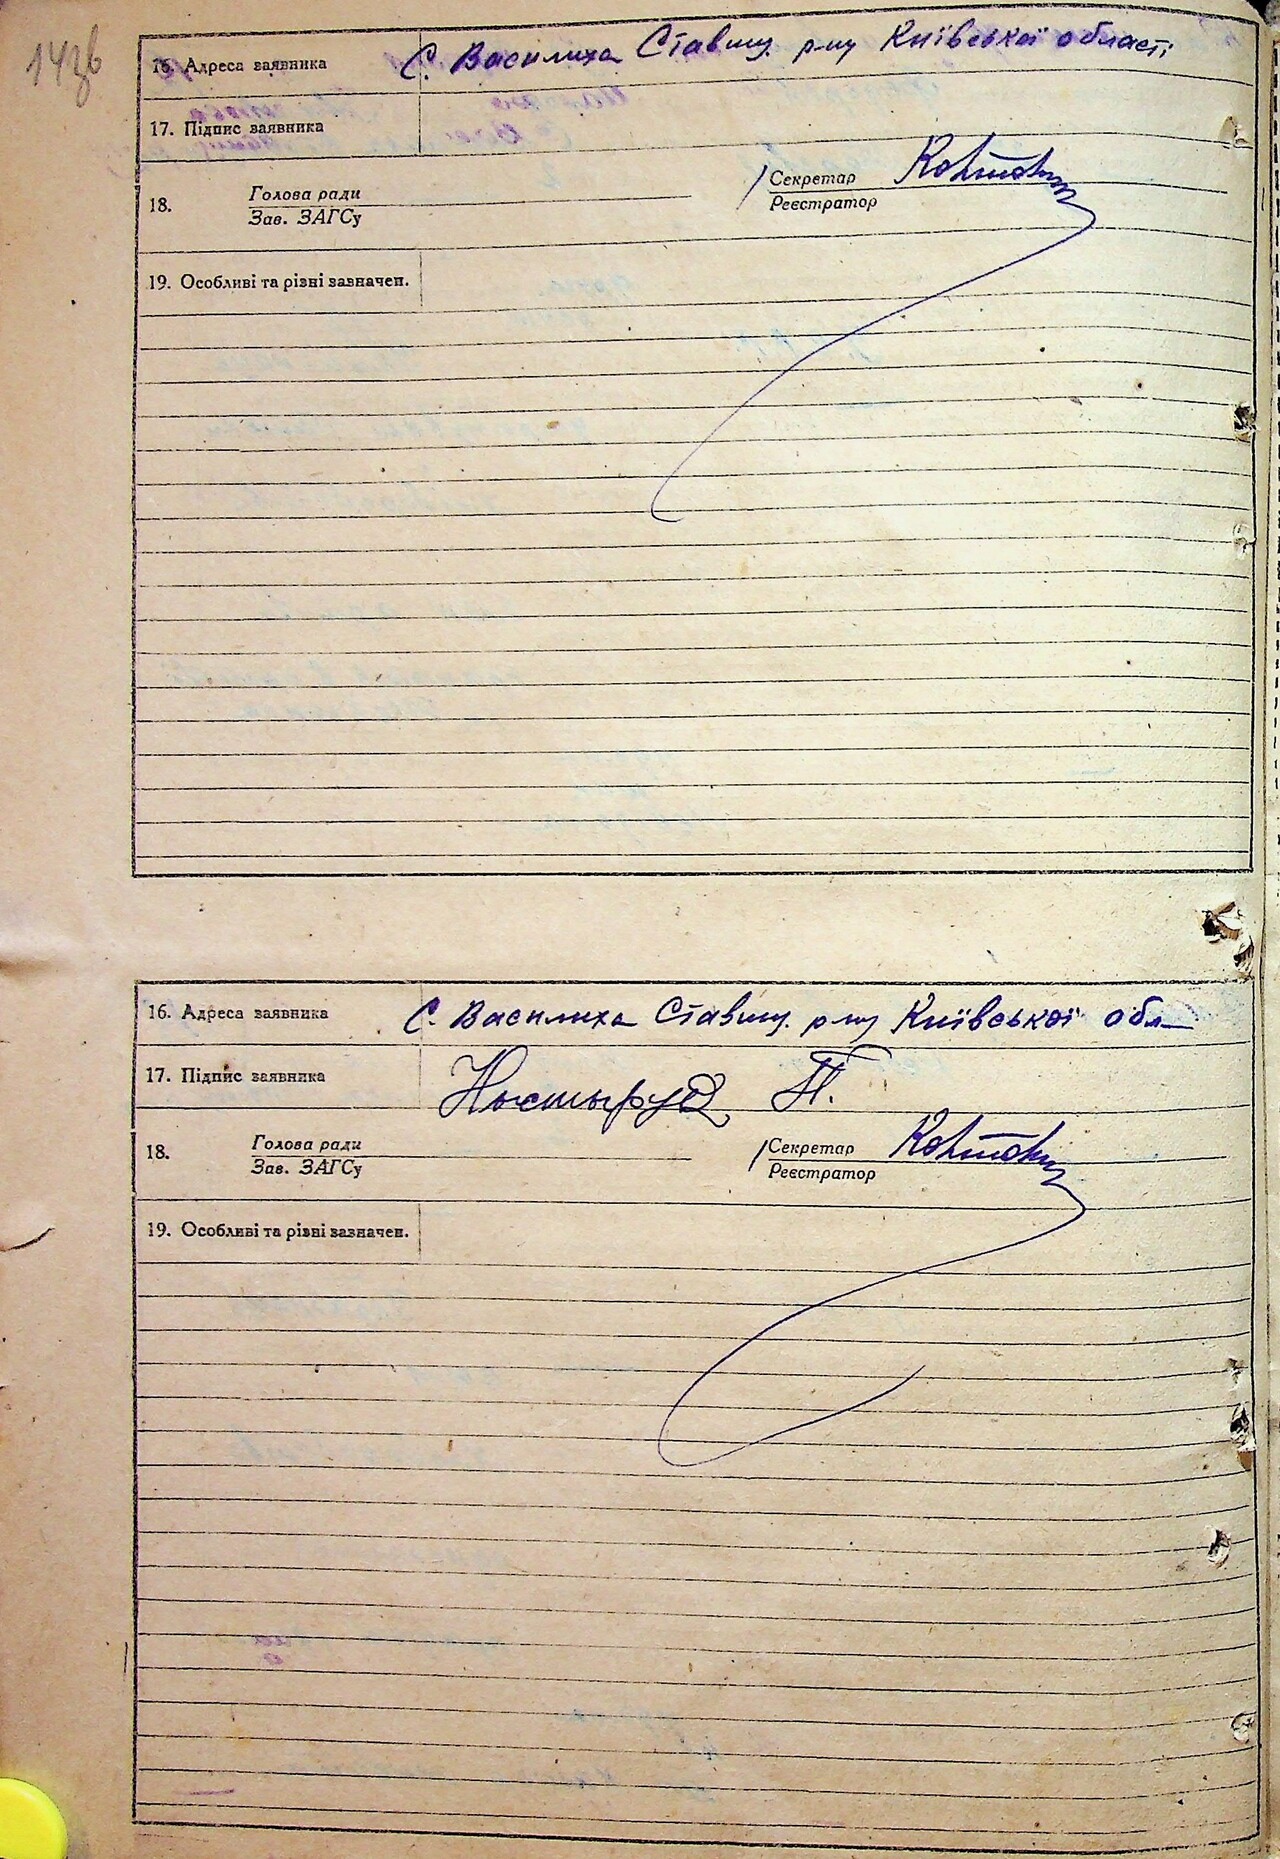 14зв
16. Адреса заявника С. Василиха Ставищ. р-ну Київської області
17. Підпис заявника
18. Голова ради Секретар
Зав. ЗАГСу Реєстратор
19. Особливі та різні зазначен.
16. Адреса заявника С. Василиха Ставищ. р-ну Київської обл
17. Підпис заявника П.
18. Голова ради Секретар
Зав. ЗАГСу Реєстратор
19. Особливі та різні зазначен.